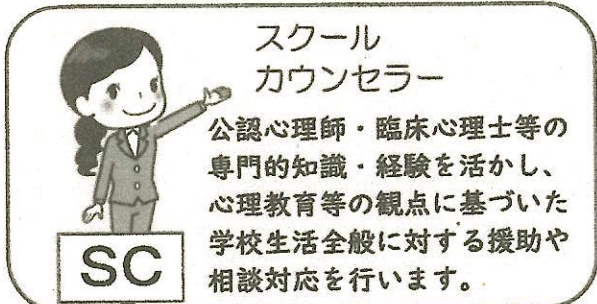 スクール
カウンセラー
公認心理師・臨床心理士等の
専門的知識・経験を活かし、
心理教育等の観点に基づいた
学校生活全般に対する援助や
相談対応を行います。
SC